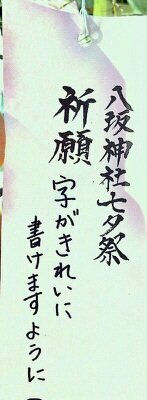 八坂神社七夕祭
祈願
字がきれいに
書けますように